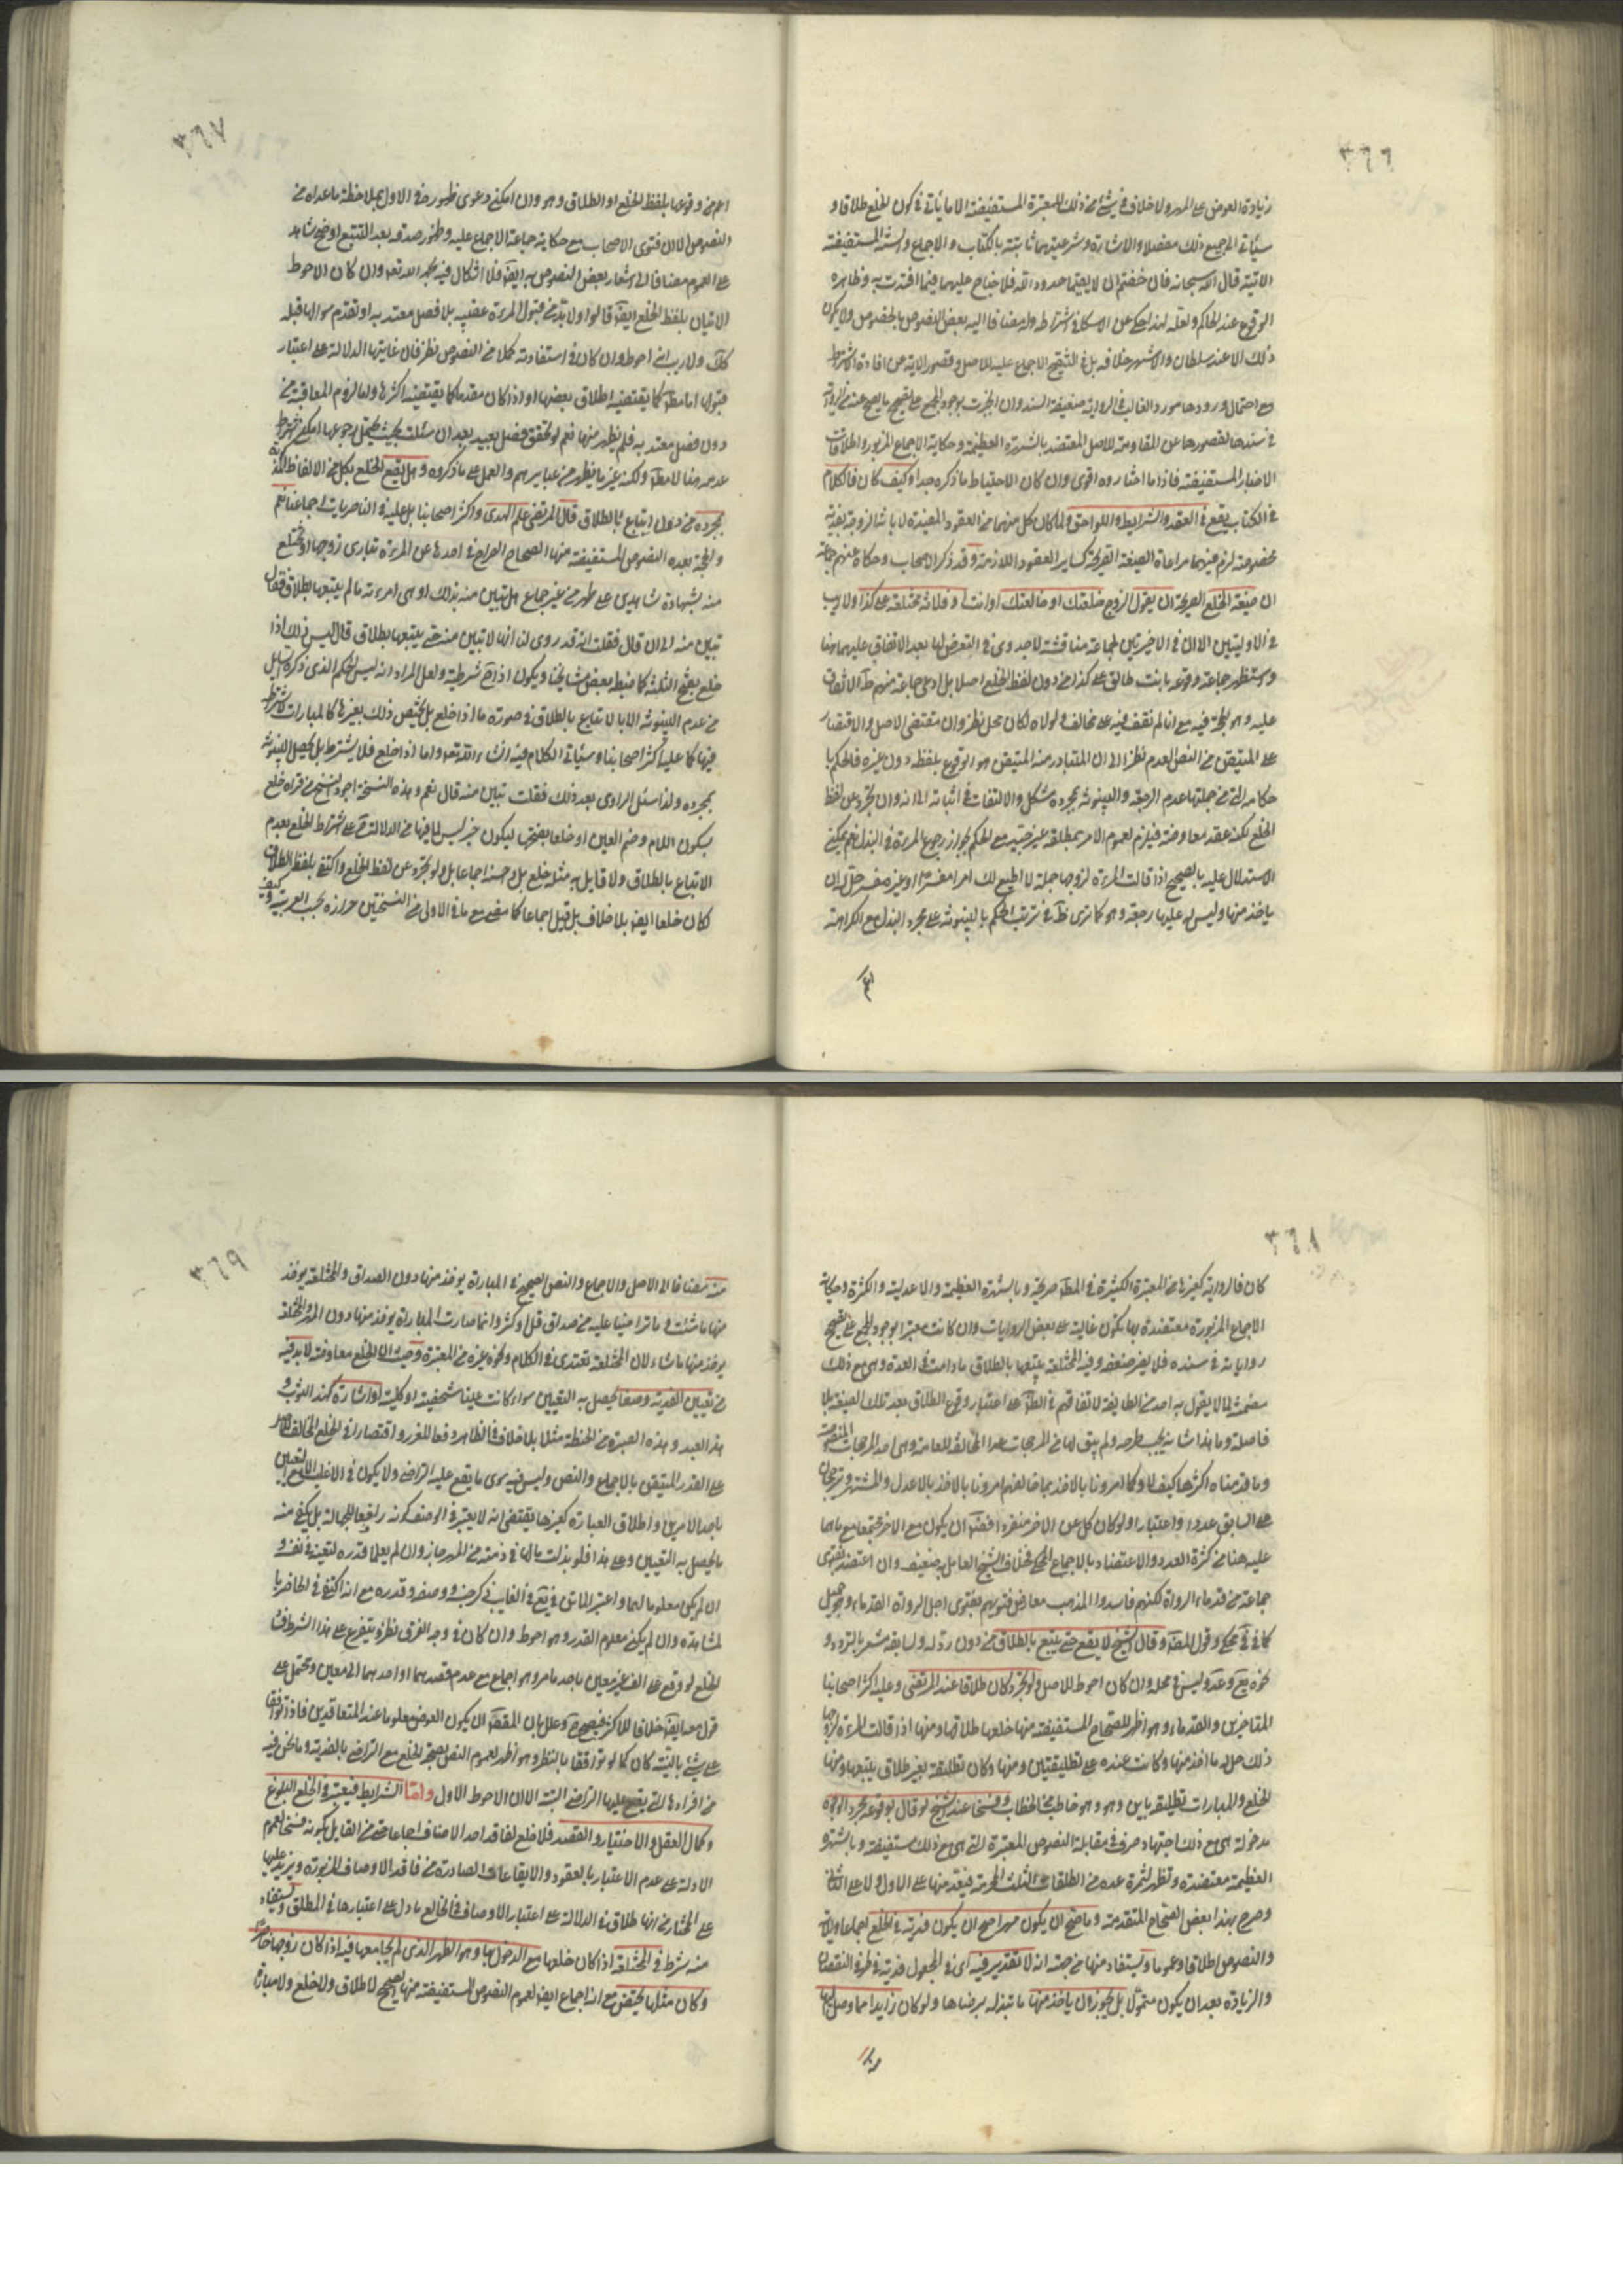 ٣٦٦
زيادة العوض على المهر ولا خلاف في شئ من ذلك للمعتبرة المستفيضة الا ما يأتي في كون الخلع طلاقا و
سيأتي الى جميع ذلك مفصلا والاشارة وشرعيتهما ثابتة بالكتاب والاجماع والسنة المستفيضة
الاتية قال الله سبحانه فان خفتم ان لا يقيما حدود الله فلا جناح عليهما فيما افتدت به وظاهره
الوقوع عند الحاكم ولعله لهذا حكى عن الاسكافي اشتراطه وله مضافا اليه بعض النصوص بالخصوص ولا يكون
ذلك الا عند سلطان والاشهر خلافه بل في التنقيح الاجماع عليه للاصل وقصور الاية عن افادة الاشتراط
مع احتمال ورودها مورد الغالب في الرواية ضعيفة السند وان انجبرت بوجود المجمع على تصحيح ما يصح عنه في الرواية
في سندها لقصورها عن المقاومة للاصل المعتضد بالشهرة العظيمة وحكاية الاجماع المزبور واطلاقات
الاخبار المستفيضة فاذا ما اختاروه اقوى وان كان الاحتياط ما ذكره جدا وكيف كان فالكلام
في الكتاب يقع في العقد والشرايط واللواحق ولما كان كل منهما من العقود المفيدة لابانة الزوجة بفدية
مخصوصة لزم فيهما مراعاة الصيغة القريحة كساير العقود اللازمة وقد ذكر الاصحاب وحكاه عنهم جماعة
ان صيغة الخلع الصريحة ان يقول الزوج خلعتك او خالعتك او انت او فلانة مختلعة على كذا ولا ريب
في الاوليين الا ان في الاخيرتين لجماعة مناقشة لا جدوى في التعرض لها بعد الاتفاق عليهما هنا
واستظهر جماعة وقوعه بانت طالق على كذا من دون لفظ الخلع اصلا بل ادعى جماعة منهم ظاهر الاتفاق
عليه وهو الحجة فيه مع انا لم نقف فيه على مخالف ولولاه لكان محل نظر وان مقتضى الاصل والاقتصار
على المتيقن من النص العدم نظرا الى ان المتبادر منه المتيقن هو الوقوع بلفظه دون غيره فالحكم با
حكامه التي من جملتها عدم الرجعة والبينونة بمجرده مشكل والالتفات في اثباته الى انه وان تجرد عن لفظ
الخلع لكنه عقد معاوضة فيلزم لعموم الامر بمطلقه غير جيد مع الحكم بجواز رجوع المرءة في البذل نعم يمكن
الاستدلال عليه بالصحيح اذا قالت المرءة لزوجها جملة لا اطيع لك امرا مفسرا او غير مفسر حل له ان
ياخذ منها وليس له عليها رجعة وهو كما ترى ظاهر في ترتب الحكم بالبينونة على مجرد البذل مع الكراهة
٣٦٧
اعم من وقوعها بلفظ الخلع او الطلاق وهو وان امكن دعوى ظهوره في الاول بملاحظة ما عداه من
النصوص الا ان فتوى الاصحاب مع حكاية جماعة الاجماع عليه وظهور صدقه بعد التتبع اوضح شاهد
على العموم مضافا الى اشعار بعض النصوص به ايضا فلا اشكال فيه بحمد الله تعالى وان كان الاحوط
الاتيان بلفظ الخلع ايضا قالوا ولا بد من قبول المرءة عقيبه بلا فصل معتد به او تقدم سؤالها قبله
كذلك ولا ريب انه احوط وان كان في استفادته كملا من النصوص نظر فان غايتها الدلالة على اعتبار
قبولها اما مط كما يقتضيه اطلاق بعضها او اذا كان مقدما كما يقتضيه اكثرها واما لزوم المعاقبة من
دون فصل معتد به فلم يظهر منها نعم لو تحقق فصل بعيد بعد ان سئلت بحيث يحتمل رجوعها امكن اشتراط
عدمه هنا لا مط ولكنه غير ما يظهر من عبايرهم والعمل على ما ذكروه وهل يقع الخلع بكل من الالفاظ المذكورة
بمجرده من دون اتباع بالطلاق قال المرتضى علم الهدى واكثر اصحابنا بل عليه في الناصريات اجماعنا نعم
والحجة بعده النصوص المستفيضة منها الصحاح الصراح في احدها عن المرءة تبارى زوجها او تختلع
منه بشهادة شاهدين على طهر من غير جماع هل تبين منه بذلك او هي امرءته ما لم يتبعها بطلاق فقال
تبين منه الى ان قال فقلت انه قد روى لنا انها لا تبين منه حتى يتبعها بطلاق قال ليس ذلك اذا
خلع بفتح الثلثة كما ضبطه بعض مشايخنا ويكون اذا شرطية ولعل المراد انه ليس الحكم الذي ذكره السائل
من عدم البينونة الا بالاتباع بالطلاق في صورة ما اذا خلع بل يختص ذلك بغيرها كالمبارات لاشتراطه
فيها كما عليه اكثر اصحابنا وسيأتي الكلام فيه انشاء الله تعالى واما اذا خلع فلا يشترط بل يحصل البينونة
بمجرده ولذا سئل الراوى بعد ذلك فقلت تبين منه قال نعم وهذه النسخة اجود النسخ من قراه خلع
بسكون اللام وضم العين او خلعا بفتحها ليكون خبر ليس لما فيها من الدلالة على اشتراط الخلع بعدم
الاتباع بالطلاق ولا قايل به مثله خلع بل وحسنه اجماعا بل ولو تجرد عن لفظ الخلع واكتفى بلفظ الطلاق
لكان خلعا ايضا بلا خلاف بل قيل اجماعا كما مضى مع ما في الاول من النسختين حرازة بحسب العربية وكيف
٣٦٨
كان فالرواية كغيرها من المعتبرة الكثيرة في المط صريحة وبالشهرة العظيمة والاعدلية والكثرة وحكاية
الاجماع المزبورة معتضدة بها يكون غالبة على بعض الروايات وان كانت معتبرا لوجود المجمع على تصحيح
رواياته في سنده فلا يضر ضعفه وفيه المختلعة يتبعها بالطلاق ما دامت في العدة وهي مع ذلك
متضمنة لما لا يقول به احد من الطايفة لاتفاقهم في الظ على اعتبار وقوع الطلاق بعد تلك الصيغة بلا
فاصلة وما هذا شانه يجب طرحه ولم يبق لها من المرجحات عدا المخالفة للعامة وهي احد المرجحات المنصوصة
وما قدمناه اكثرها كيف لا وكما امرونا بالاخذ بما خالفهم امرونا بالاخذ بالاعدل والمشتهر وترجحان
على السابق عددا واعتبارا ولو كان كل عن الاخر منفردا فضلا ان يكون مع الاخر مجتمعا مع ما هما
عليه هنا من كثرة العدد والاعتضاد بالاجماع المحكي فخلاف الشيخ العامل به ضعيف وان اعتضد بفتوى
جماعة من قدماء الرواة لكنهم فاسدوا المذهب معارض فتويهم بفتوى اجل الرواة القدماء وهو جميل
كما في محكي وقول المص وقال الشيخ لا يقع حتى يتبع بالطلاق من دون رد له ولسابقه مشعر بالتردد و
نحوه يع وعد وليس في محله وان كان احوط للاصل ولو تجرد كان طلاقا عند المرتضى وعليه اكثر اصحابنا
المتاخرين والقدماء وهو اظهر للصحاح المستفيضة منها خلعها طلاقها ومنها اذا قالت المرءة لزوجها
ذلك حل له ما اخذ منها وكانت عنده على تطليقتين ومنها وكان تطليقة بغير طلاق يتبعها ومنها
الخلع والمبارات تطليقة باين وهو وهو خاطب من الخطاب وفسخا عند الشيخ لو قال بوقوعه مجردا لوجوه
مدخولة هي مع ذلك اجتهاد صرف في مقابلة النصوص المعتبرة التي هي مع ذلك مستفيضة وبالشهرة
العظيمة معتضدة وتظهر الثمرة عده من الطلقات الثلث المحرمة فيعد منها على الاول ولا على الثاني
وصرح بهذا بعض الصحاح المتقدمة وما صح ان يكون مهرا صح ان يكون فدية في الخلع اجماعا والاية
والنصوص اطلاقا وعموما ويستفاد منها من جهته انه لا تقدير فيه اى في المجعول فدية في طرفي النقصان
والزيادة بعد ان يكون متمولا بل يجوز ان ياخذ منها ما تبذله برضاها ولو كان زايدا عما وصل اليها
٣٦٩
منه مضافا الى الاصل والاجماع والنص الصحيح في المباراة يوخذ منها دون الصداق والمختلعة يوخذ
منها ما شئت او ما تراضيا عليه من صداق قل او كثر وانما صارت المباراة يوخذ منها دون المهر والمختلعة
يوخذ منها ما شاء لان المختلعة تعتدى في الكلام ونحوه غيره من المعتبرة وحيث ان الخلع معاوضة لا بد فيه
من تعيين الفدية وصفا يحصل به التعيين سواء كانت عينا شخصية او كلية او اشارة كهذا الثوب و
هذا العبد وهذه الصبرة من الحنطة مثلا بلا خلاف في الظاهر دفعا للغرر واقتصارا في الخلع المخالف للاصل
على القدر المتيقن بالاجماع والنص وليس فيه سوى ما يقع عليه التراضي ولا يكون في الاغلب الا مع التعيين
باحد الامرين واطلاق العبارة كغيرها يقتضى انه لا يعتبر في الوصف كونه رافعا للجهالة بل يكفى منه
ما يحصل به التعيين وعلى هذا فلو بذلت ما لها في ذمته من المهر جاز وان لم يعلما قدره لتعينه في نفسه و
ان لم يكن معلوما لهما واعتبر الماتن في يع في الغايب ذكر جنسه ووصفه وقدره مع انه اكتفى في الحاضر با
لمشاهدة وان لم يكن معلوم القدر وهو احوط وان كان في وجه الفرق نظر ويتفرع على هذا الشرط ف
الخلع لو وقع على الف غير معين باحد ما مر وهو اجماع مع عدم قصدهما او احدهما الى معين ويحتمل على
قول معه ايضا خلافا للاكثر فيصح وعلل بان المقصود ان يكون العوض معلوما عند المتعاقدين فاذا توافقا
على شئ بالنية كان كما لو توافقا بالنطق وهو اظهر لعموم النص بصحة الخلع مع التراضي بالفدية وما نحن فيه
من افرادها التي يقع عليها التراضي البتة الا ان الاحوط الاول واما الشرايط فيعتبر في الخلع البلوغ
وكمال العقل والاختيار والقصد فلا خلع لفاقد احد الاصناف اجماعا حتى من القايل بكونه فسخا لعموم
الادلة على عدم الاعتبار بالعقود والايقاعات الصادرة من فاقد الاوصاف المزبورة ويزيد عليها
على المختار من انها طلاق في الدلالة على اعتبار الاوصاف في الخالع ما دل على اعتبارها في المطلق ويستفاد
منه شرط في المختلعة اذا كان خلعها مع الدخول بها وهو الطهر الذى لم يجامعها فيه اذا كان زوجها حاضرا
وكان مثلها تحيض مع انه اجماع ايضا لعموم النصوص المستفيضة منها الصحيح لا طلاق ولا خلع ولا مباراة